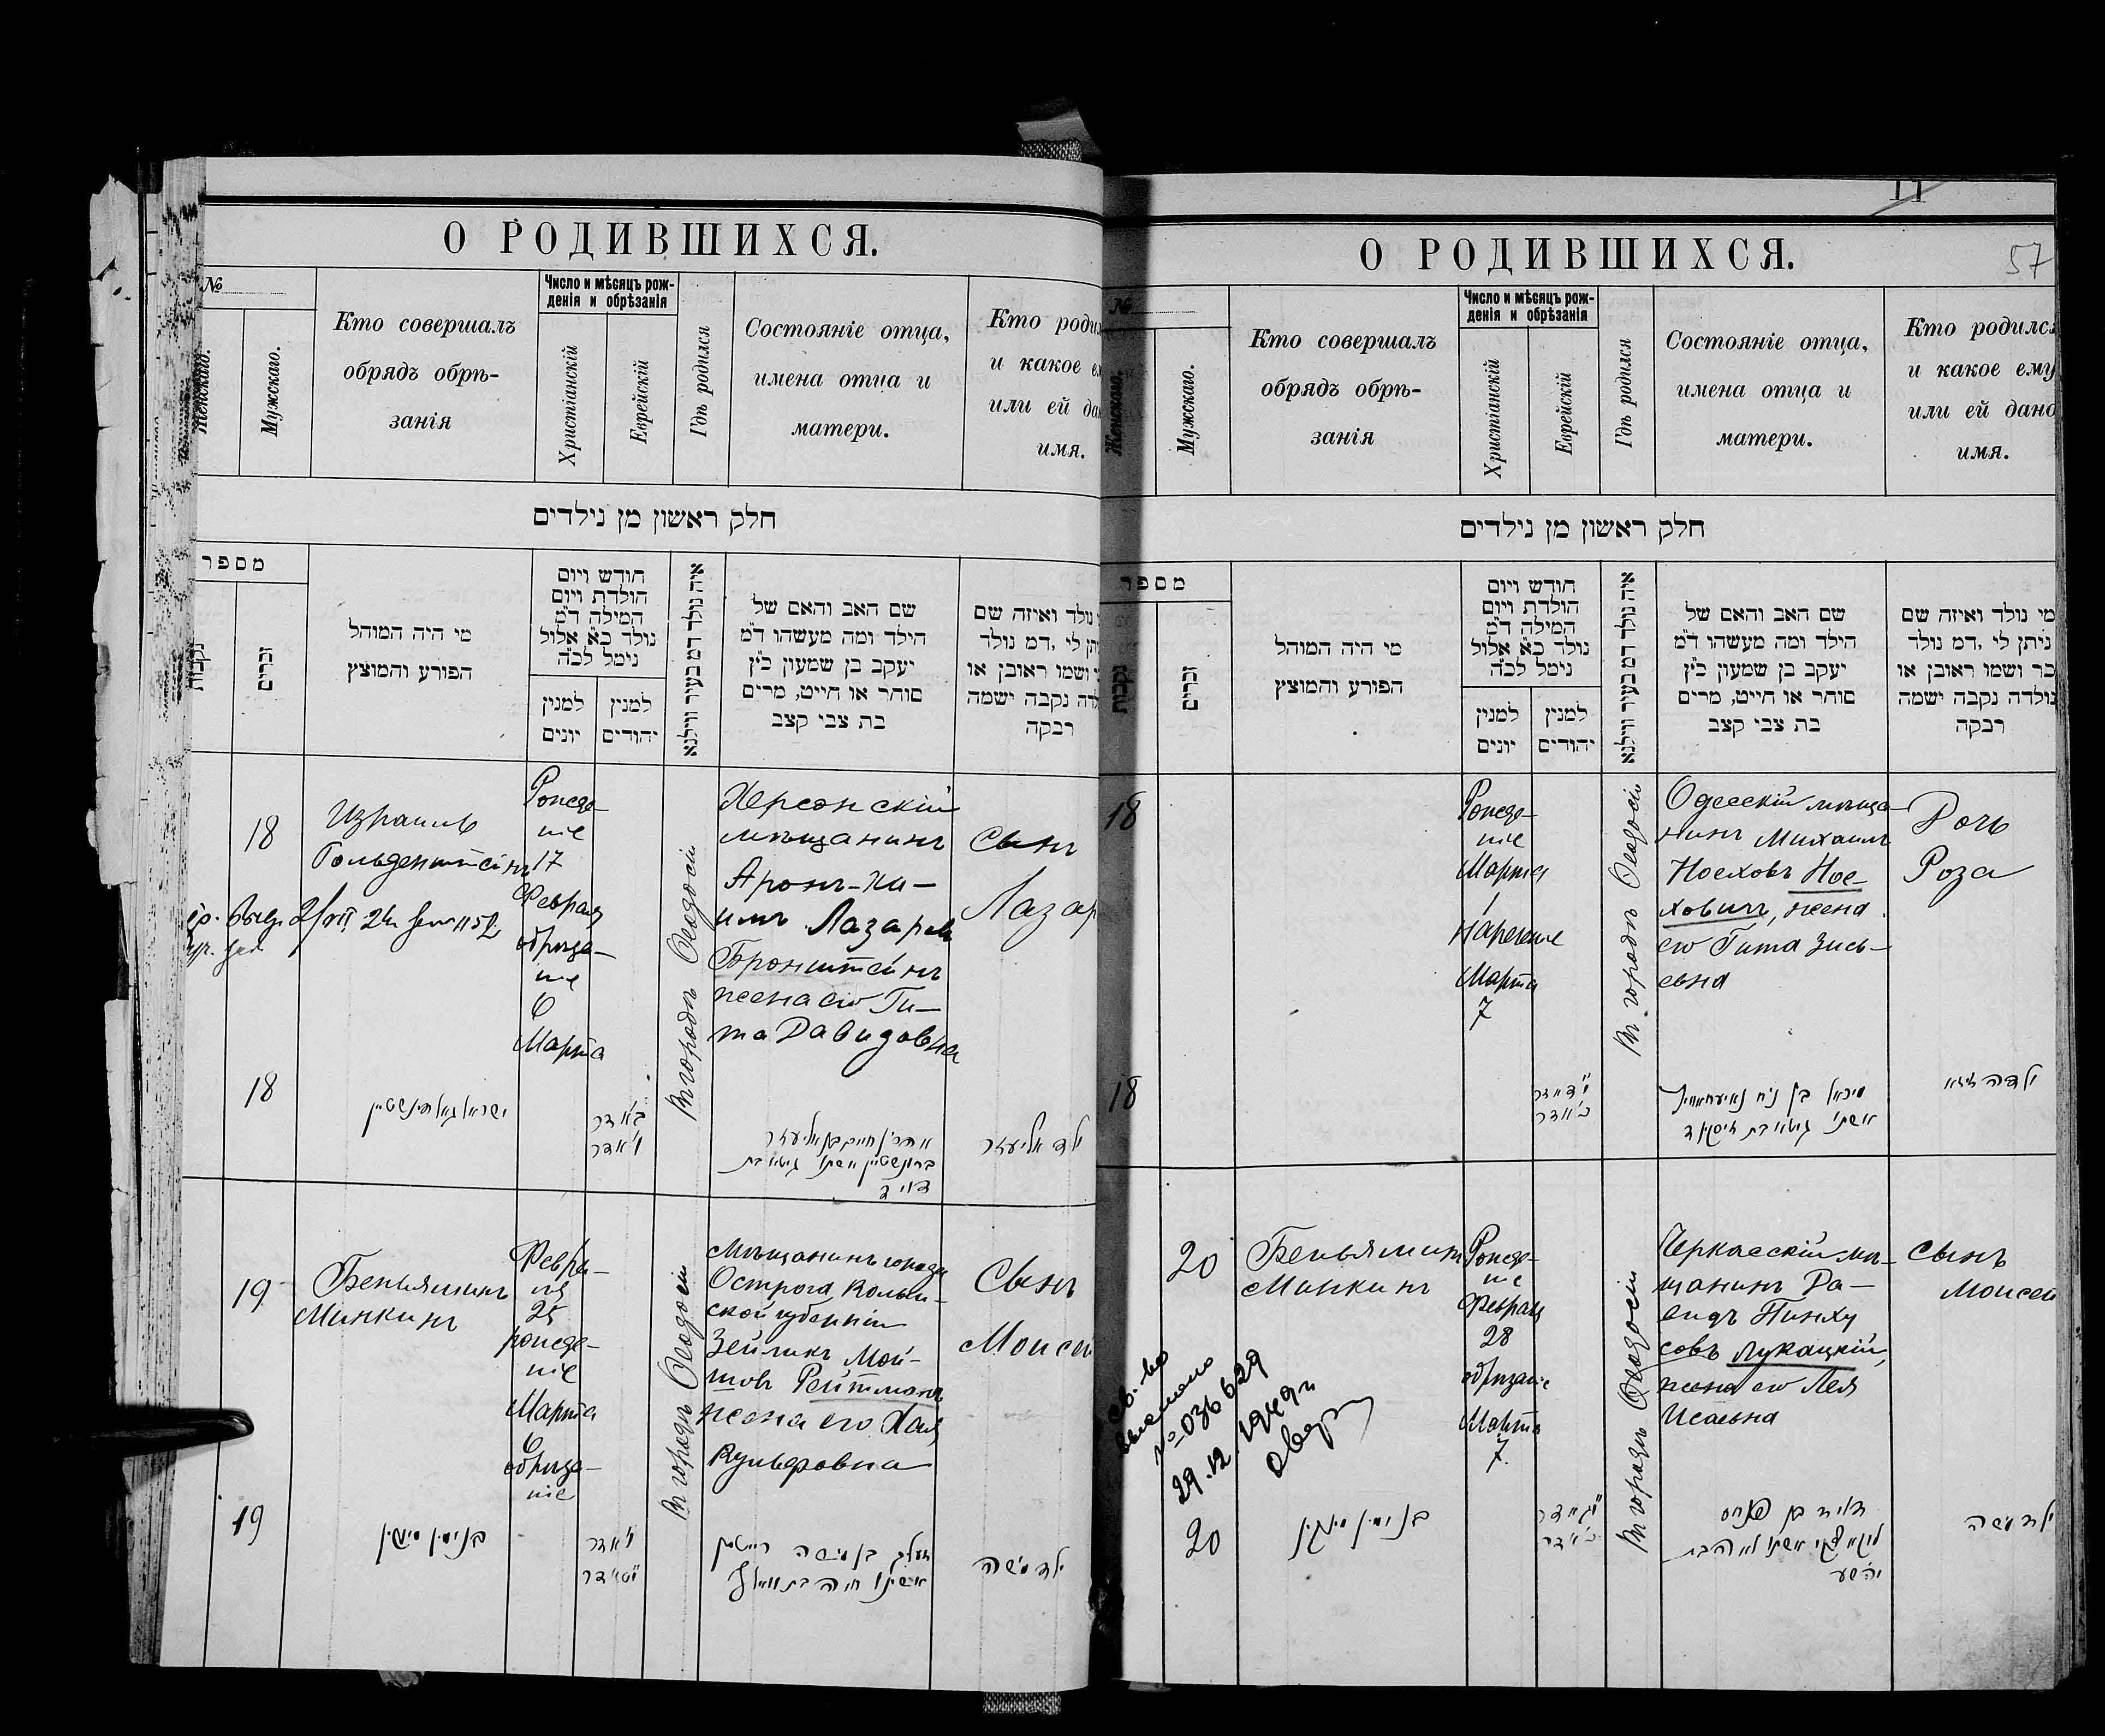 О РОДИВШИХСЯ.
№
Женскаго.
Мужскаго.
Кто совершалъ
обрядъ обрѣ-
занія
Число и мѣсяцъ рож-
денія и обрѣзанія
Христіанскій
Еврейскій
Гдѣ родился
Состояніе отца,
имена отца и
матери.
Кто родил
и какое е
или ей да
имя.
חלק ראשון מן נילדים
מספר
נקבות
זכרים
מי היה המוהל
הפורע והמוצץ
חודש ויום
הולדת ויום
המילה ד״מ
נולד כ״א אלול
נימל לכ״ה
למנין
יונים
למנין
יהודים
איה נולד דמ בעיר ווילנא
שם האב והאם של
הילד ומה מעשהו ד״מ
יעקב בן שמעון כ״ץ
סוחר או חייט, מרים
בת צבי קצב
נולד ואיזה שם
לי ,דמ נולד
ושמו ראובן או
נקבה ישמה
רבקה
18
Израиль
Гольденштейнъ
Рожде-
ніе
17
Февраля
обрѣза-
ніе
6
Марта
Въ городѣ Ѳеодосіи
Херсонскій
мѣщанинъ
Аронъ-Ха-
имъ Лазаревъ
Бронштейнъ
жена его Ги-
та Давидовна
Сынъ
Лазар
18
ישראל גאלדענשטיין
ב׳ אדר
אהרן חיים בן אליעזר
ברונשטיין אשתו גיטא בת
דוד
ילד אליעזר
19
Беньяминъ
Минкинъ
Февра-
ля
25
рожде-
ніе
Марта
6
обрѣза-
ніе
Въ городѣ Ѳеодосіи
Мѣщанинъ города
Острога Волын-
ской губерніи
Зейликъ Мой-
шовъ Рейтманъ
жена его Хая
Вульфовна
Сынъ
Моисей
19
בנימין מינקין
זעליג בן משה רייטמן
אשתו חיה בת וואלף
ילד משה
11
57
О РОДИВШИХСЯ.
№
Женскаго.
Мужскаго.
Кто совершалъ
обрядъ обрѣ-
занія
Число и мѣсяцъ рож-
денія и обрѣзанія
Христіанскій
Еврейскій
Гдѣ родился
Состояніе отца,
имена отца и
матери.
Кто родился
и какое ему
или ей дано
имя.
חלק ראשון מן נילדים
מספר
נקבות
זכרים
מי היה המוהל
הפורע והמוצץ
חודש ויום
הולדת ויום
המילה ד״מ
נולד כ״א אלול
נימל לכ״ה
למנין
יונים
למנין
יהודים
איה נולד דמ בעיר ווילנא
שם האב והאם של
הילד ומה מעשהו ד״מ
יעקב בן שמעון כ״ץ
סוחר או חייט, מרים
בת צבי קצב
מי נולד ואיזה שם
ניתן לי ,דמ נולד
זכר ושמו ראובן או
נולדה נקבה ישמה
רבקה
18
Рожде-
ніе
Марта
1
нареченіе
Марта
7
Въ городѣ Ѳеодосіи
Одесскій мѣща-
нинъ Михаилъ
Ноеховъ Ное
ховичъ, жена
его Гита Зись-
евна
Дочь
Роза
18
אשתו גיטא בת
ילדה
20
Беньяминъ
Минкинъ
Рожде-
ніе
Февраля
28
обрѣзаніе
Марта
7.
Въ городѣ Ѳеодосіи
Черкасскій мѣ-
щанинъ Да-
видъ Пинху
совъ Лукацкій,
жена его Лея
Исаевна
сынъ
Моисей
св-во
выслано
№ 036629
29.12.1949 г
20
בנימין מינקין
דוד בן פנחס
אשתו לאה בת
ילד משה